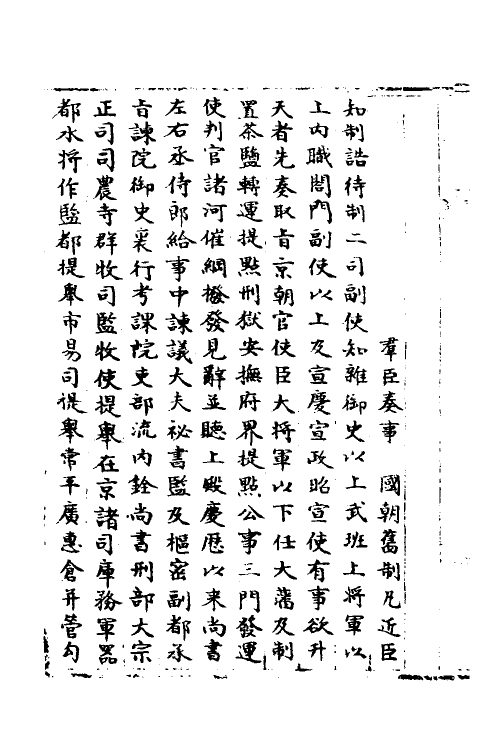 羣臣奏事　國朝舊制凡近臣
知制誥待制二司副使知雜御史以上武班上將軍以
上內職閤門副使以上及宣慶宣政昭宣使有事欲升
天者先奏取旨京朝官使臣大將軍以下任大藩及制
置茶鹽轉運提點刑獄安撫府界提點公事三門發運
使判官諸河催綱撥發見辭並聽上殿慶厯以來尚書
左右丞侍郎給事中諫議大夫祕書監及樞密副都承
旨諫院御史裏行考課院吏部流內銓尚書刑部大宗
正司司農寺群牧司監牧使提舉在京諸司庫務軍器
都水將作監都提舉市易司提舉常平廣惠倉幷管勾